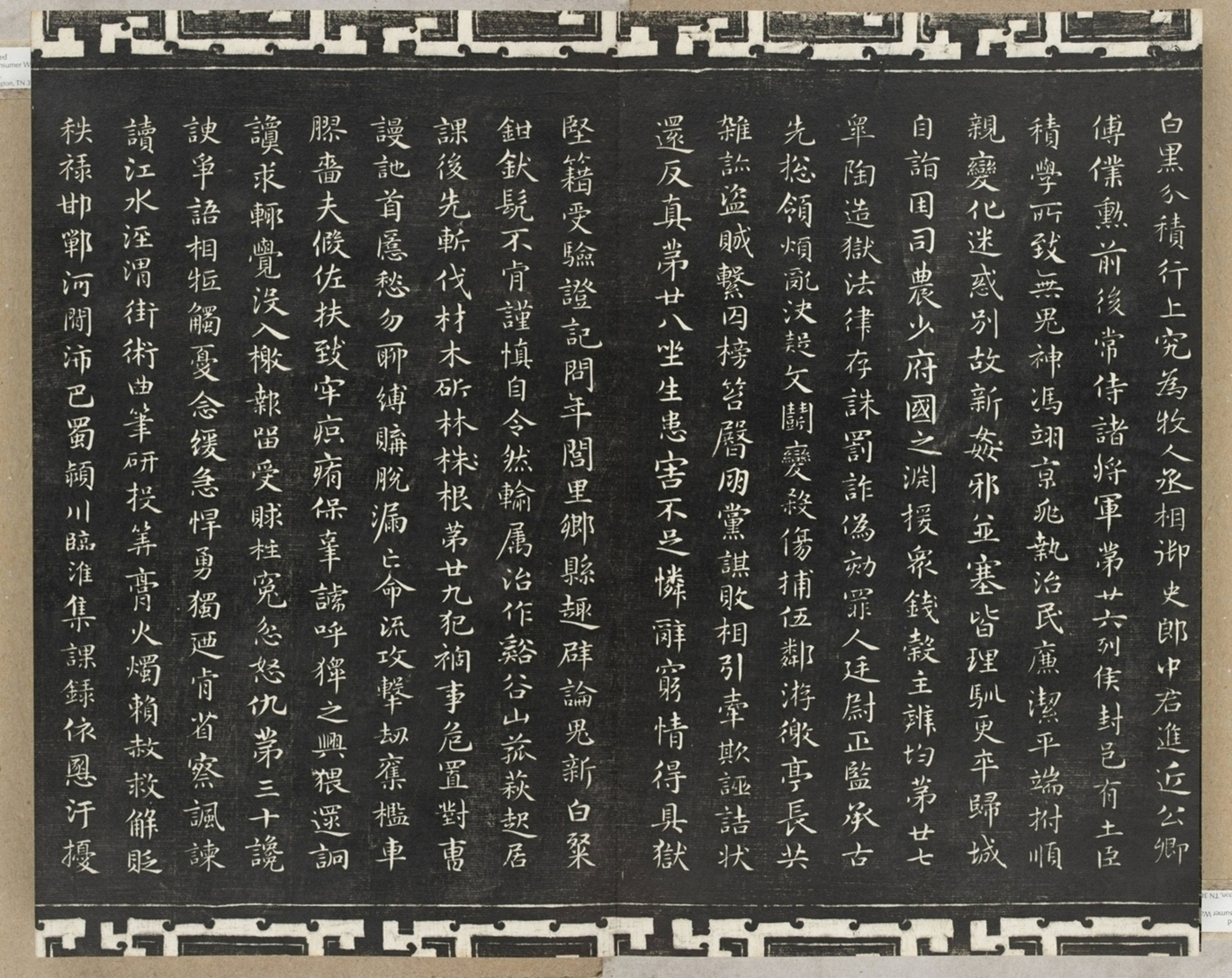 白黒分積行上究為牧人丞相御史郎中君進近公卿
傅僕勳前後常侍諸將軍第廿六列侯封邑有土臣
積學所致無鬼神馮翊京兆執治民廉潔平端拊順
親變化迷惑別故新姦邪並塞皆理馴更卒歸城
自詣因司農少府國之淵援衆錢穀主辨均第廿七
皐陶造獄法律存誅罰詐偽劾罪人廷尉正監承古
先揔領煩亂決疑文鬭變殺傷捕伍鄰游徼亭長共
雜診盜賊繫囚榜笞臋朋黨謀敗相引牽欺誣詰狀
還反真第廿八坐生患害不足憐辭窮情得具獄
堅籍受驗證記問年閭里鄉縣趣辟論鬼新白粲
鉗釱髡不肯謹慎自令然輸属治作谿谷山菰萩起居
課後先斬伐材木斫林株根第廿九犯禍事危置對曹
謾訑首匿愁勿聊縛購脫漏亡命流攻擊劫奪檻車
膠嗇夫假佐扶致牢疻痏保辜謼呼獋之興猥逮詗
讀求輒覺沒入檄報留受賕枉冤忿怒仇第三十讒
諛爭語相牴觸憂念緩急悍勇獨迺肯省察諷諫
讀江水涇渭街術曲筆研投筭膏火燭賴赦救解貶
秩祿邯鄲河間沛巴蜀潁川臨淮集課錄依恩汙擾